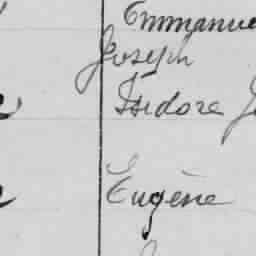 Emmanue
Joseph
Isidore J
Eugène